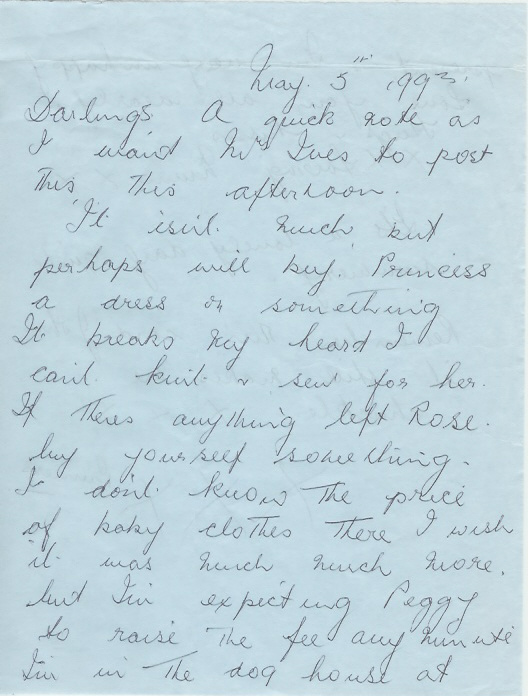 May. 5th 1993.
Darlings. A quick note as
I want Mrs Ives to post
this this afternoon.
It isn't. much but
perhaps will buy. Princess
a dress or something
It breaks my heard I
can't. knit & sew for her.
If theres anything left Rose.
buy yourself something.
I don't. know the price
of baby clothes there I wish
it was much much more.
but I'm expecting Peggy
to raise the fee any minute
I'm in the dog house at